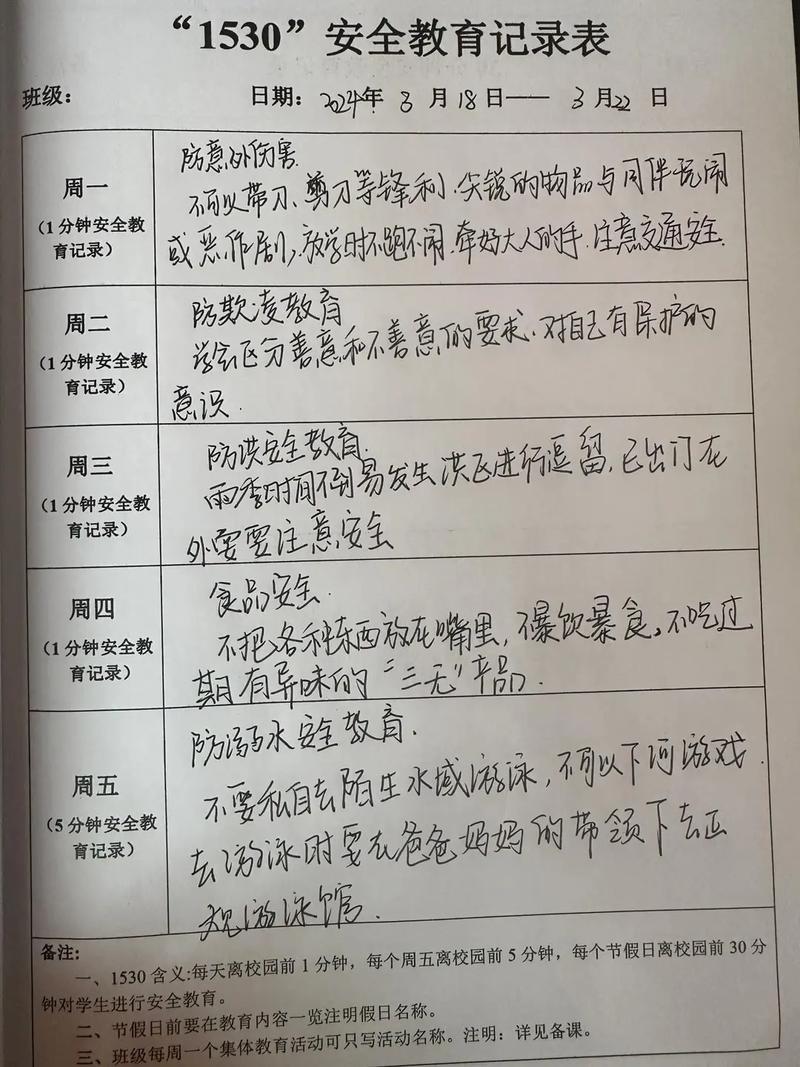 “1530”安全教育记录表
班级： 日期：2024年 3 月 18 日—— 3 月 22 日
周一
（1 分钟安全教
育记录）
防意外伤害
不可以带刀、剪刀等锋利、尖锐的物品与同伴玩闹
或恶作剧，放学时不跑不闹.牵好大人的手.注意交通安全.
周二
（1 分钟安全教
育记录）
防欺凌教育
学会区分善意和不善意的要求、对自己有保护的
意识.
周三
（1 分钟安全教
育记录）
防洪安全教育.
雨季时间不到易发生洪 进行逗留，已出门在
外要要注意安全
周四
（1 分钟安全教
育记录）
食品安全.
不把各种东西放在嘴里，不爆饮暴食，不吃过
期有异味的“三无”产品.
周五
（5 分钟安全教
育记录）
防溺水安全教育.
不要私自去陌生水域游泳，不可以下河游戏.
去游泳时要在爸爸妈妈的带领下去正
规游泳馆.
备注:
一、1530 含义:每天离校园前 1 分钟，每个周五离校园前 5 分钟，每个节假日离校园前 30 分
钟对学生进行安全教育。
二、节假日前要在教育内容一览注明假日名称。
三、班级每周一个集体教育活动可只写活动名称。注明：详见备课。